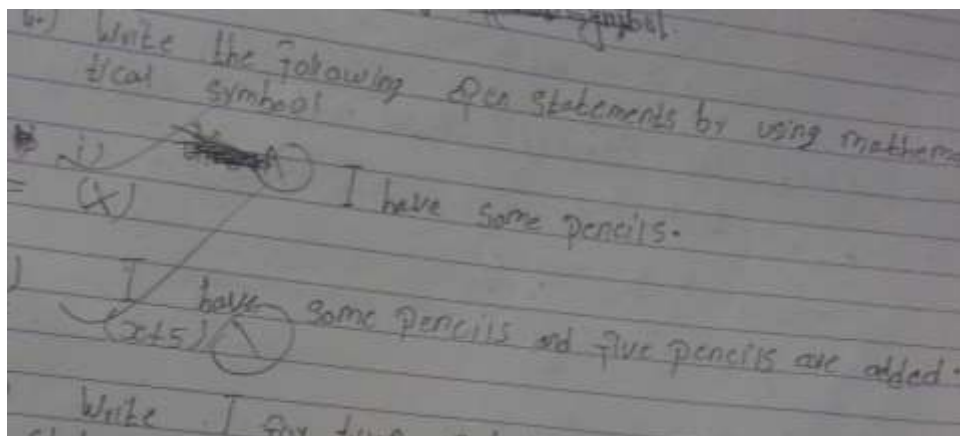 symbol.
6.) Write the following open statements by using mathema
tical symbool.
i) I have some pencils.
= (x)
) I have some pencils and five pencils are added.
(x+5)
Write T for true